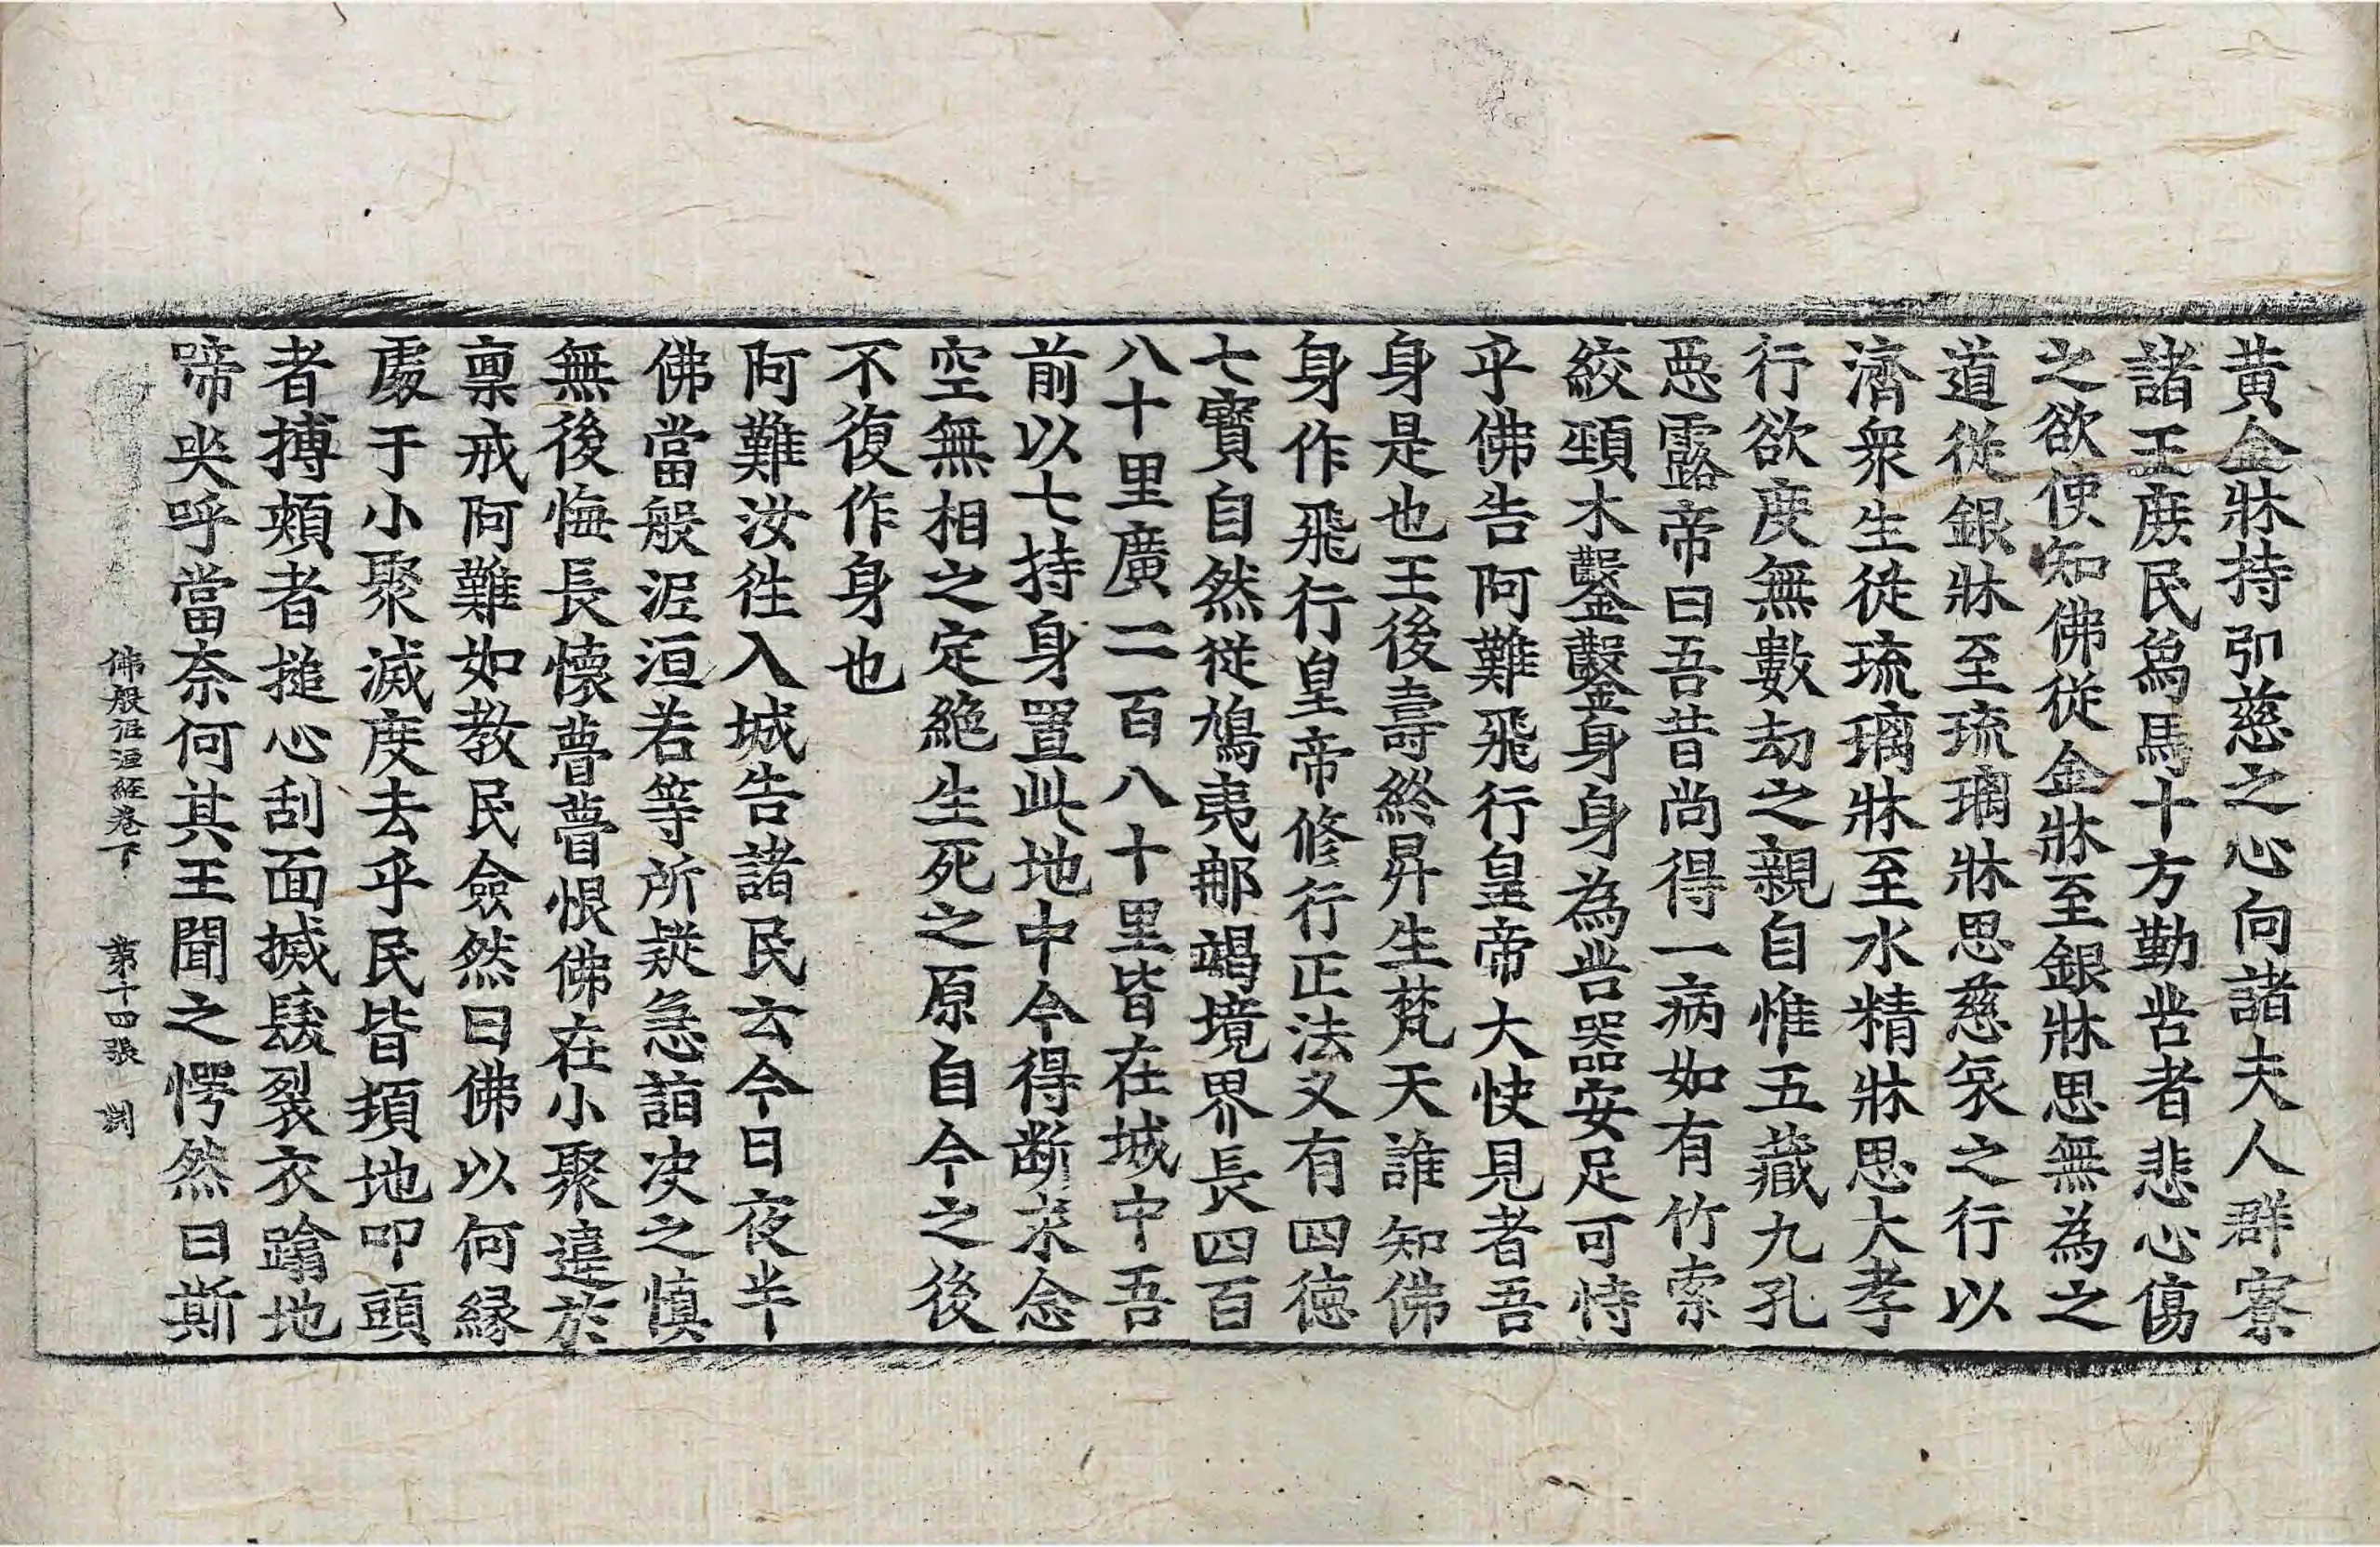 黄金牀持弘慈之心向諸夫人群寮
諸王庻民爲馬十方勤苦者悲心傷
之欲使知佛從金牀至銀牀思無為之
道從銀牀至琉璃牀思慈哀之行以
濟衆生從琉璃牀至水精牀思大孝
行欲度無數劫之親自惟五藏九孔
惡露帝曰吾昔尚得一病如有竹索
絞頸木鑿鑿身身為苦器安足可恃
乎佛告阿難飛行皇帝大快見者吾
身是也王後壽終昇生梵天誰知佛
身作飛行皇帝修行正法又有四徳
七寶自然從鳩夷那竭境界長四百
八十里廣二百八十里皆在城中吾
前以七持身置此地中今得断求念
空無相之定絶生死之原自今之後
不復作身也
阿難汝徃入城告諸民云今日夜半
佛當般泥洹若等所疑急詣决之慎
無後悔長懷瞢瞢恨佛在小聚違於
稟戒阿難如教民僉然曰佛以何縁
處于小聚滅度去乎民皆頓地叩頭
者搏頰者搥心刮面搣髮裂衣蹋地
啼哭呼當奈何其王聞之愕然曰斯
佛般泥洹經卷下 第十四張